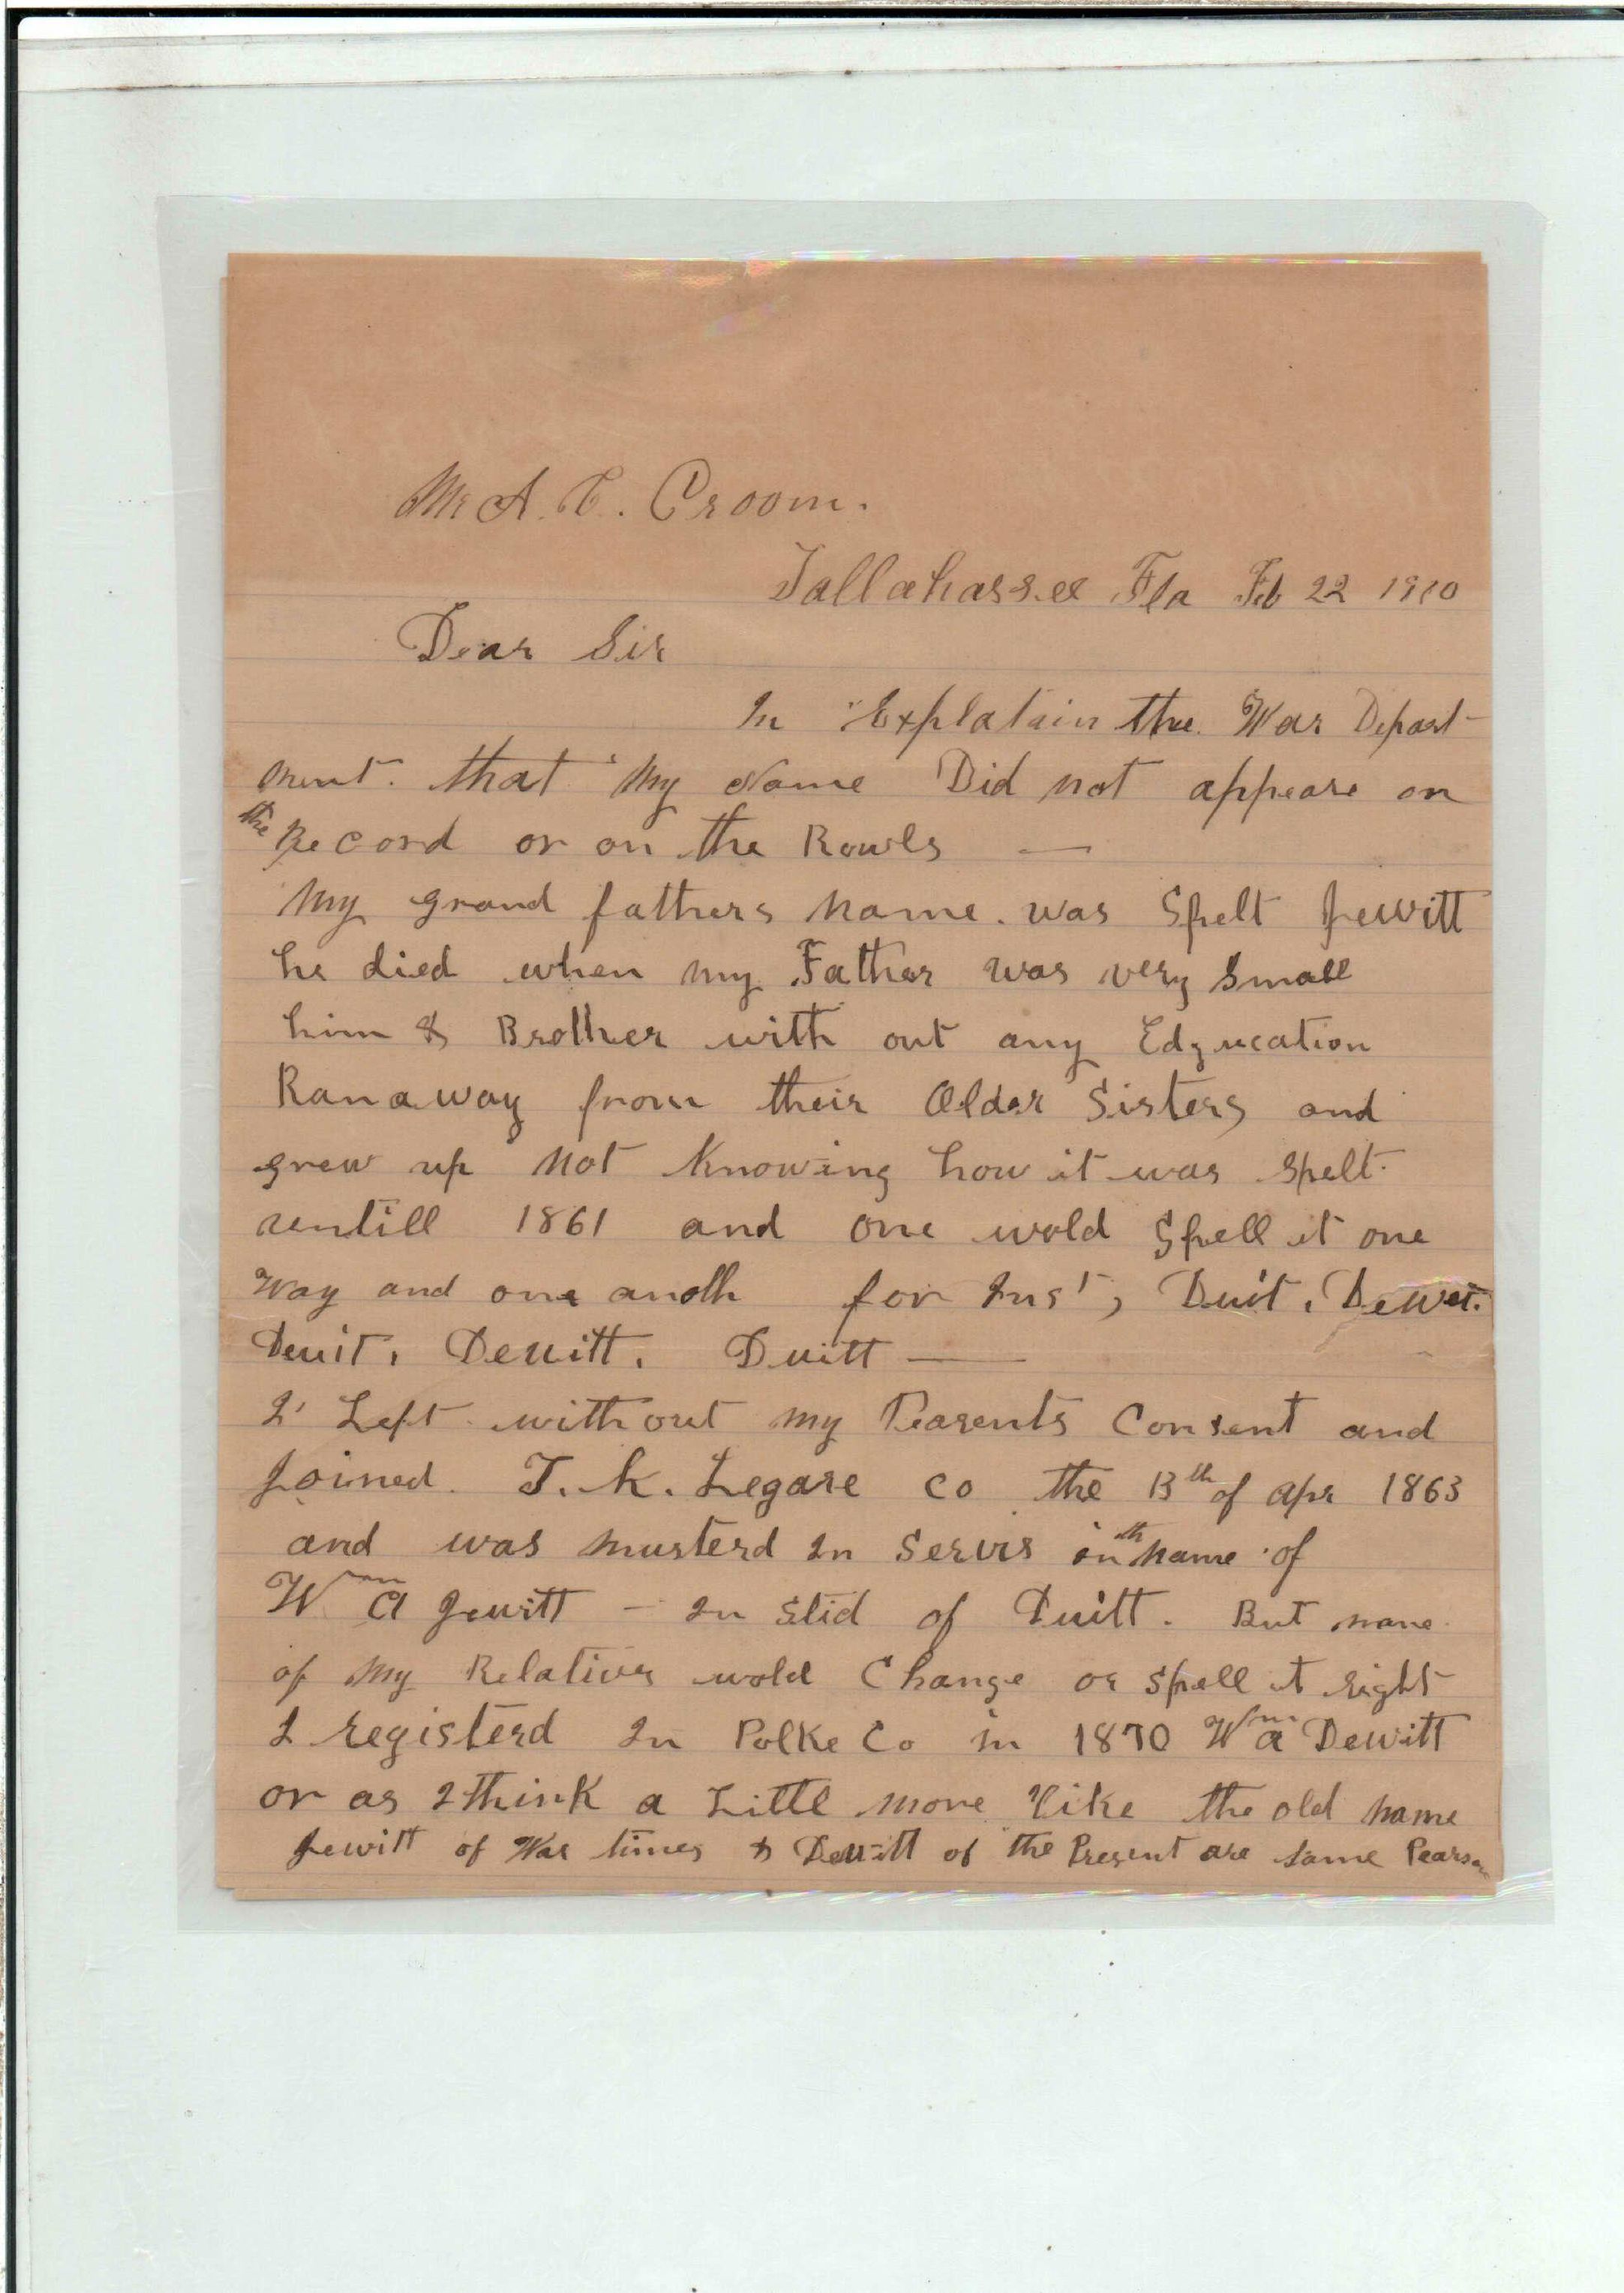 Mr A. C. Croom.
Tallahassee Fla Feb 22 1910
Dear Sir
In Explatain the War Depart-
ment. that My Name Did not appeare on
the Record or on the Rowls —
My grand fathers name. was Spelt Jewitt
he died when my Father was very Small
him & Brother with out any Edgucation
Ranaway from their Older Sisters and
grew up Not Knowing how it was Spelt
untill 1861 and one wold Spell it one
Way and one anoth for Ins't, Duit, Dewet.
Deuit, Deuitt, Duitt —
I Left without my Parents Consent and
Joined. T. K. Legare Co the 13th of apr 1863
and was musterd In Servis in th name of
Wm A Jewitt — In Stid of Duitt. But nane
of My Relatives wold Change or Spell it right
I registerd In Polke Co in 1870 Wm a Dewitt
or as I think a Littl more like the old name
Jewitt of War times & Dewitt of the Present are Same Pearson